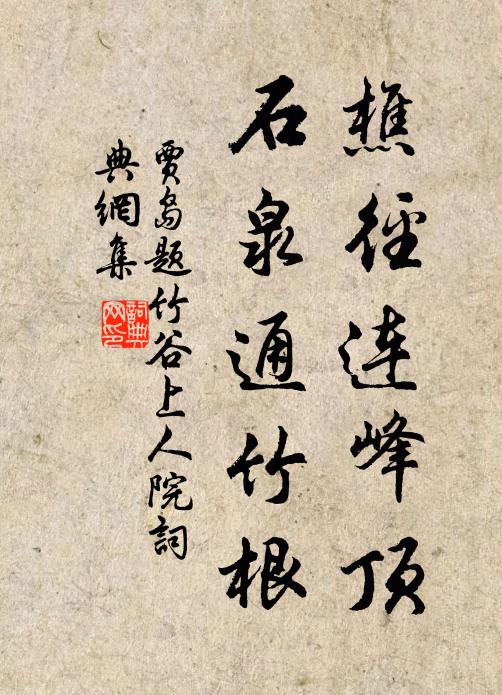 樵径连峰顶
石泉通竹根
贾岛题竹谷上人院词
典網集
詞典
网印